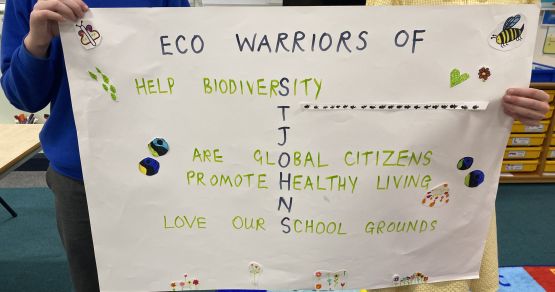 ECO WARRIORS OF
HELP BIODIVERSITY
T
J
ARE GLOBAL CITIZENS
PROMOTE HEALTHY LIVING
N
LOVE OUR SCHOOL GROUNDS